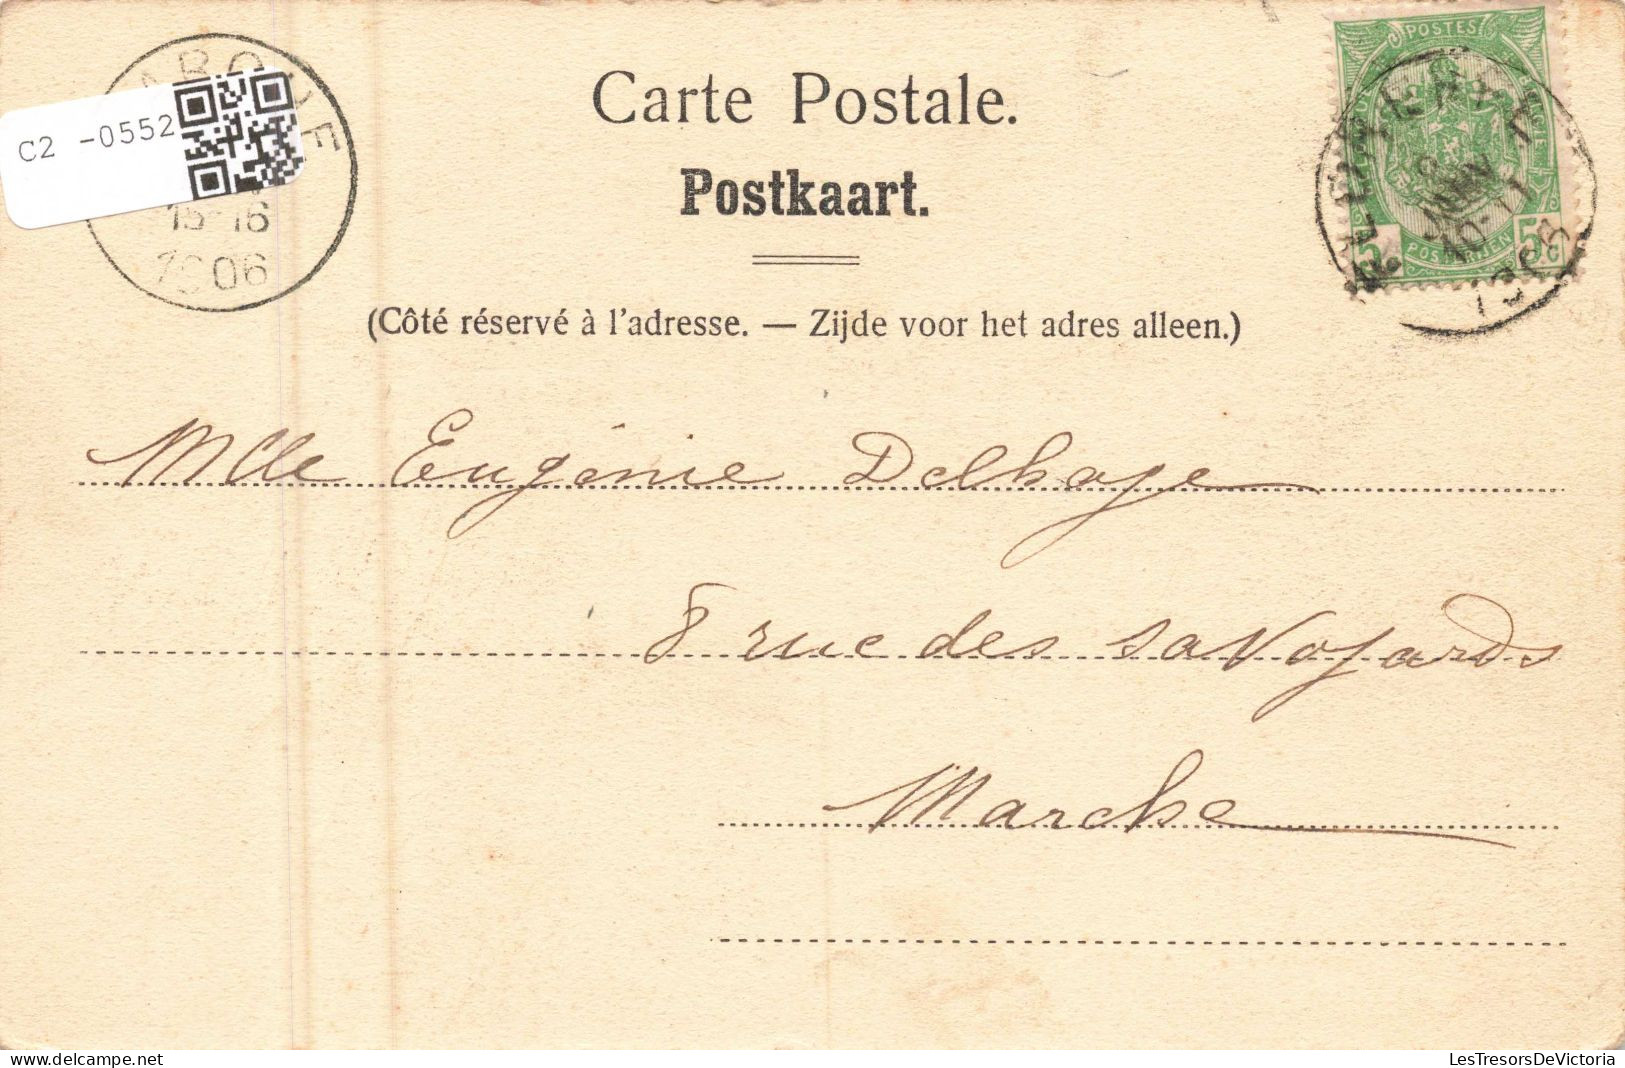 C2 -0552
15-16
1906
Carte Postale.
Postkaart.
(Côté réservé à l'adresse. — Zijde voor het adres alleen.)
POSTES
5c
POSTERIJEN
5c
JUIN
10-11
1906
Mlle Eugénie Delhaye
8 rue des savoyards
Marche
LesTresorsDeVictoria